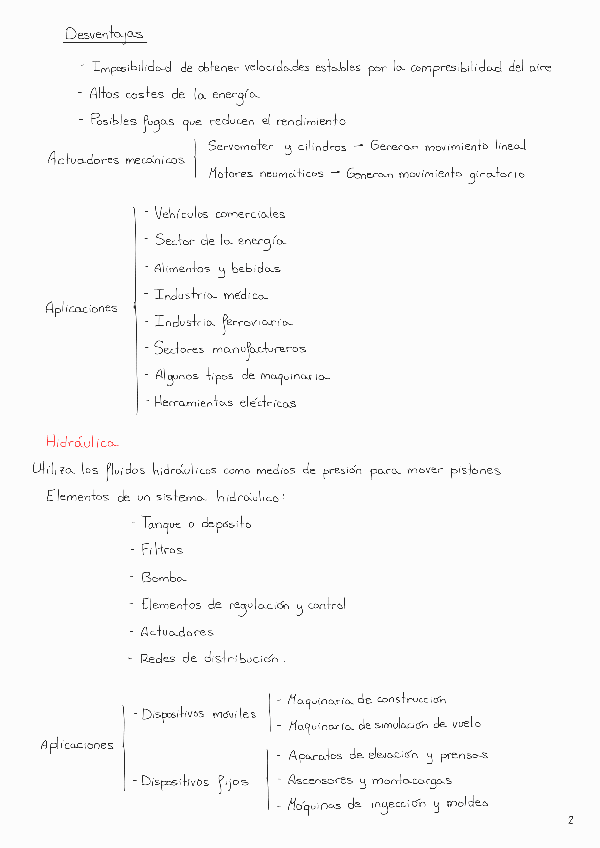 Desventajas
- Imposibilidad de obtener velocidades estables por la compresibilidad del aire
- Altos costes de la energía
- Posibles fugas que reducen el rendimiento
Actuadores mecánicos
Servomotor y cilindros → Generan movimiento lineal
Motores neumáticos → Generan movimiento giratorio
Aplicaciones
- Vehículos comerciales
- Sector de la energía
- Alimentos y bebidas
- Industria médica
- Industria ferroviaria
- Sectores manufactureros
- Algunos tipos de maquinaria
- Herramientas eléctricas
Hidráulica
Utiliza los fluidos hidráulicos como medios de presión para mover pistones
Elementos de un sistema hidráulico:
- Tanque o depósito
- Filtros
- Bomba
- Elementos de regulación y control
- Actuadores
- Redes de distribución.
Aplicaciones
- Dispositivos móviles
- Maquinaria de construcción
- Maquinaria de simulación de vuelo
- Dispositivos fijos
- Aparatos de elevación y prensas
- Ascensores y montacargas
- Máquinas de inyección y moldeo
2